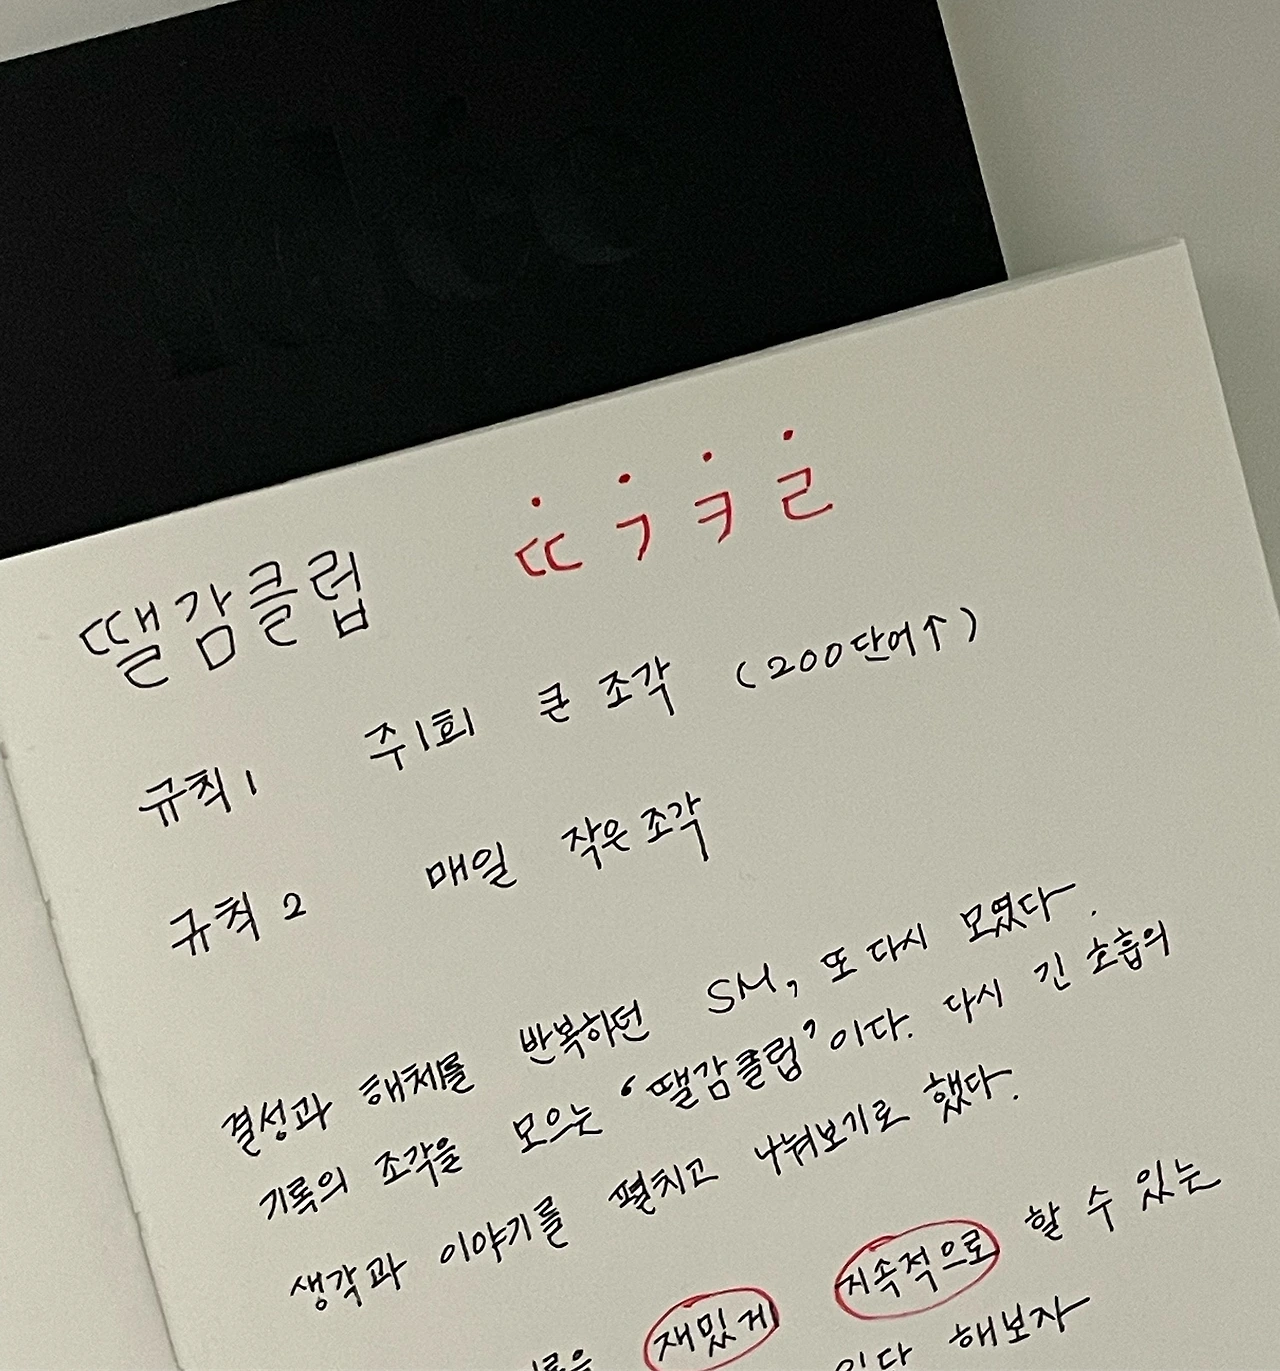 땔감클럽 ㄸ ㄱ ㅋ ㄹ
규칙1 주1회 큰 조각 (200단어↑)
규칙2 매일 작은 조각
결성과 해체를 반복하던 SM, 또 다시 모였다.
기록의 조각을 모으는 '땔감클럽'이다. 다시 긴 호흡의
생각과 이야기를 펼치고 나눠보기로 했다.
재밌게 지속적으로 할 수 있는
해보자